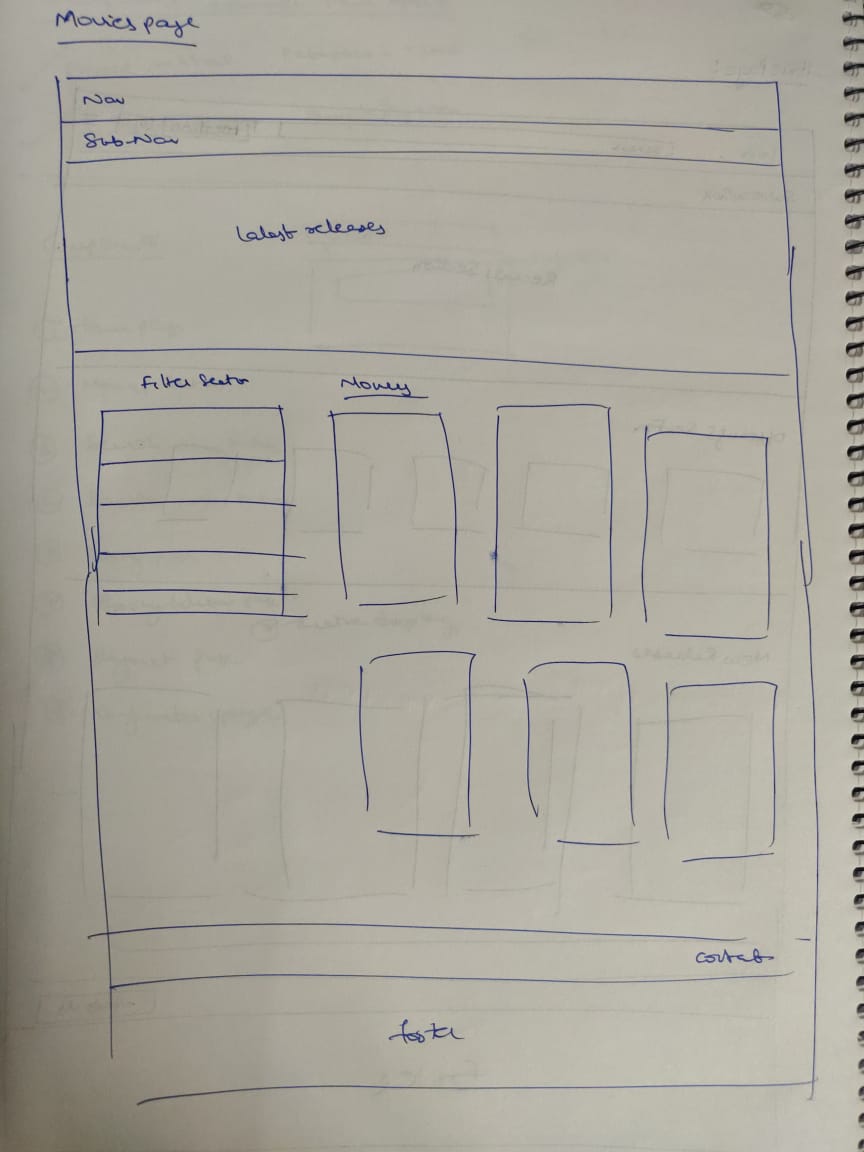 Movies page
Nav
Sub-Nav
Latest releases
Filter Section
Movies
contact
footer